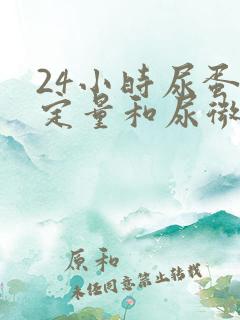 24小时尿蛋
定量和尿微
原和
未经同意禁止转载